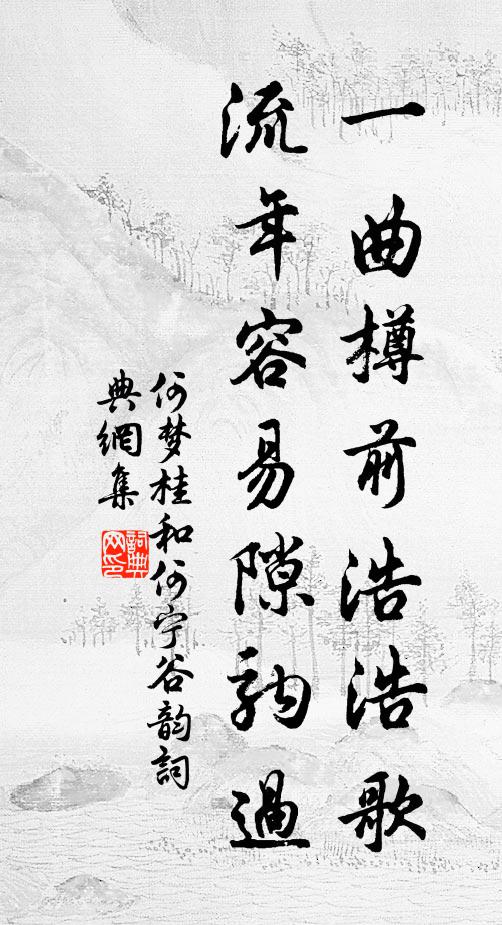 一曲樽前浩浩歌
流年容易隙駒過
何梦桂和何宁谷韵詞
典網集
詞典
网印